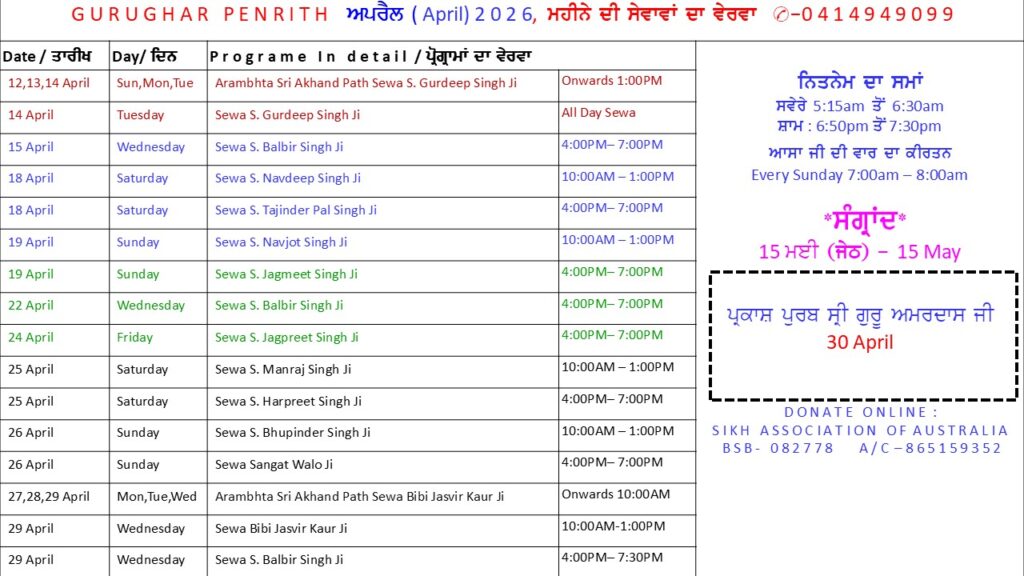 GURUGHAR PENRITH ਅਪਰੈਲ ( April) 2026, ਮਹੀਨੇ ਦੀ ਸੇਵਾਵਾਂ ਦਾ ਵੇਰਵਾ ✆–0414949099
Date / ਤਾਰੀਖ Day/ ਦਿਨ Programe In detail / ਪ੍ਰੋਗ੍ਰਾਮਾਂ ਦਾ ਵੇਰਵਾ
12,13,14 April Sun,Mon,Tue Arambhta Sri Akhand Path Sewa S. Gurdeep Singh Ji Onwards 1:00PM
14 April Tuesday Sewa S. Gurdeep Singh Ji All Day Sewa
15 April Wednesday Sewa S. Balbir Singh Ji 4:00PM– 7:00PM
18 April Saturday Sewa S. Navdeep Singh Ji 10:00AM – 1:00PM
18 April Saturday Sewa S. Tajinder Pal Singh Ji 4:00PM– 7:00PM
19 April Sunday Sewa S. Navjot Singh Ji 10:00AM – 1:00PM
19 April Sunday Sewa S. Jagmeet Singh Ji 4:00PM– 7:00PM
22 April Wednesday Sewa S. Balbir Singh Ji 4:00PM– 7:00PM
24 April Friday Sewa S. Jagpreet Singh Ji 4:00PM– 7:00PM
25 April Saturday Sewa S. Manraj Singh Ji 10:00AM – 1:00PM
25 April Saturday Sewa S. Harpreet Singh Ji 4:00PM– 7:00PM
26 April Sunday Sewa S. Bhupinder Singh Ji 10:00AM – 1:00PM
26 April Sunday Sewa Sangat Walo Ji 4:00PM– 7:00PM
27,28,29 April Mon,Tue,Wed Arambhta Sri Akhand Path Sewa Bibi Jasvir Kaur Ji Onwards 10:00AM
29 April Wednesday Sewa Bibi Jasvir Kaur Ji 10:00AM-1:00PM
29 April Wednesday Sewa S. Balbir Singh Ji 4:00PM– 7:30PM
ਨਿਤਨੇਮ ਦਾ ਸਮਾਂ
ਸਵੇਰੇ 5:15am ਤੋਂ 6:30am
ਸ਼ਾਮ : 6:50pm ਤੋਂ 7:30pm
ਆਸਾ ਜੀ ਦੀ ਵਾਰ ਦਾ ਕੀਰਤਨ
Every Sunday 7:00am – 8:00am
*ਸੰਗ੍ਰਾਂਦ*
15 ਮਈ (ਜੇਠ) – 15 May
ਪ੍ਰਕਾਸ਼ ਪੁਰਬ ਸ੍ਰੀ ਗੁਰੂ ਅਮਰਦਾਸ ਜੀ
30 April
DONATE ONLINE :
SIKH ASSOCIATION OF AUSTRALIA
BSB- 082778 A/C–865159352